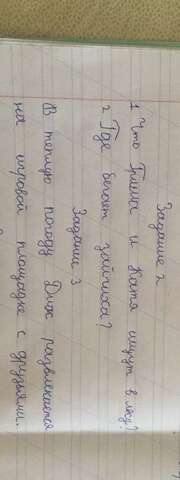 Задание 2
1 Что Гриша и Катя ищут в лесу?
2 Где бегает зайчиха?
Задание 3
В теплую погоду Джек развлекается
на игровой площадке с друзьями.